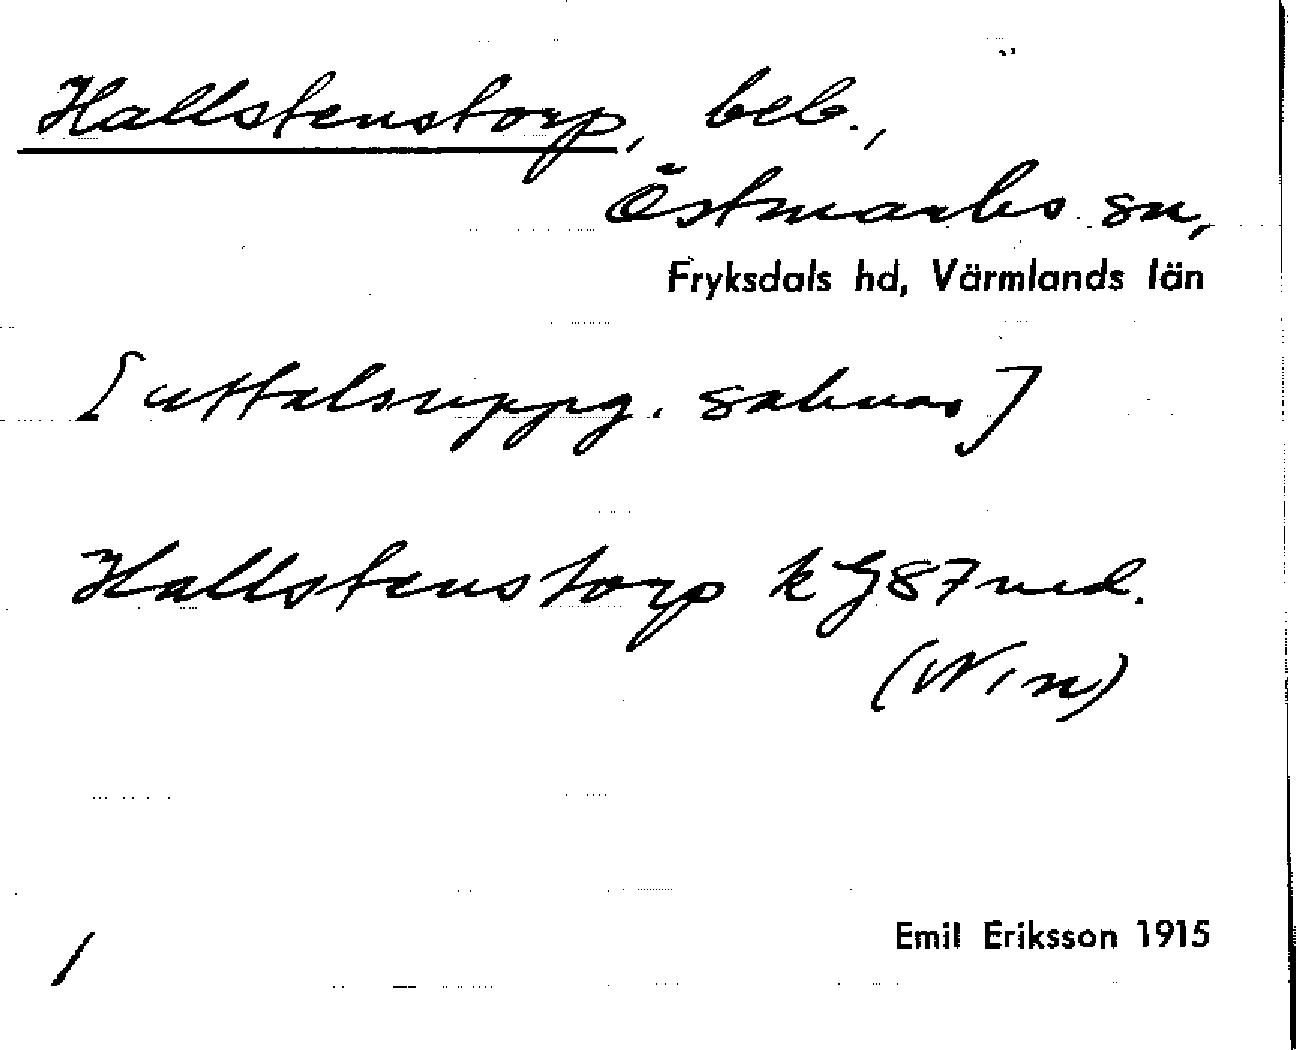 Hallstenstorp, beb.,
Östmarks sn,
Fryksdals hd, Värmlands län
[uttalsuppg. saknas]
Hallstenstorp k G87 ned.
(W in)
Emil Eriksson 1915
/